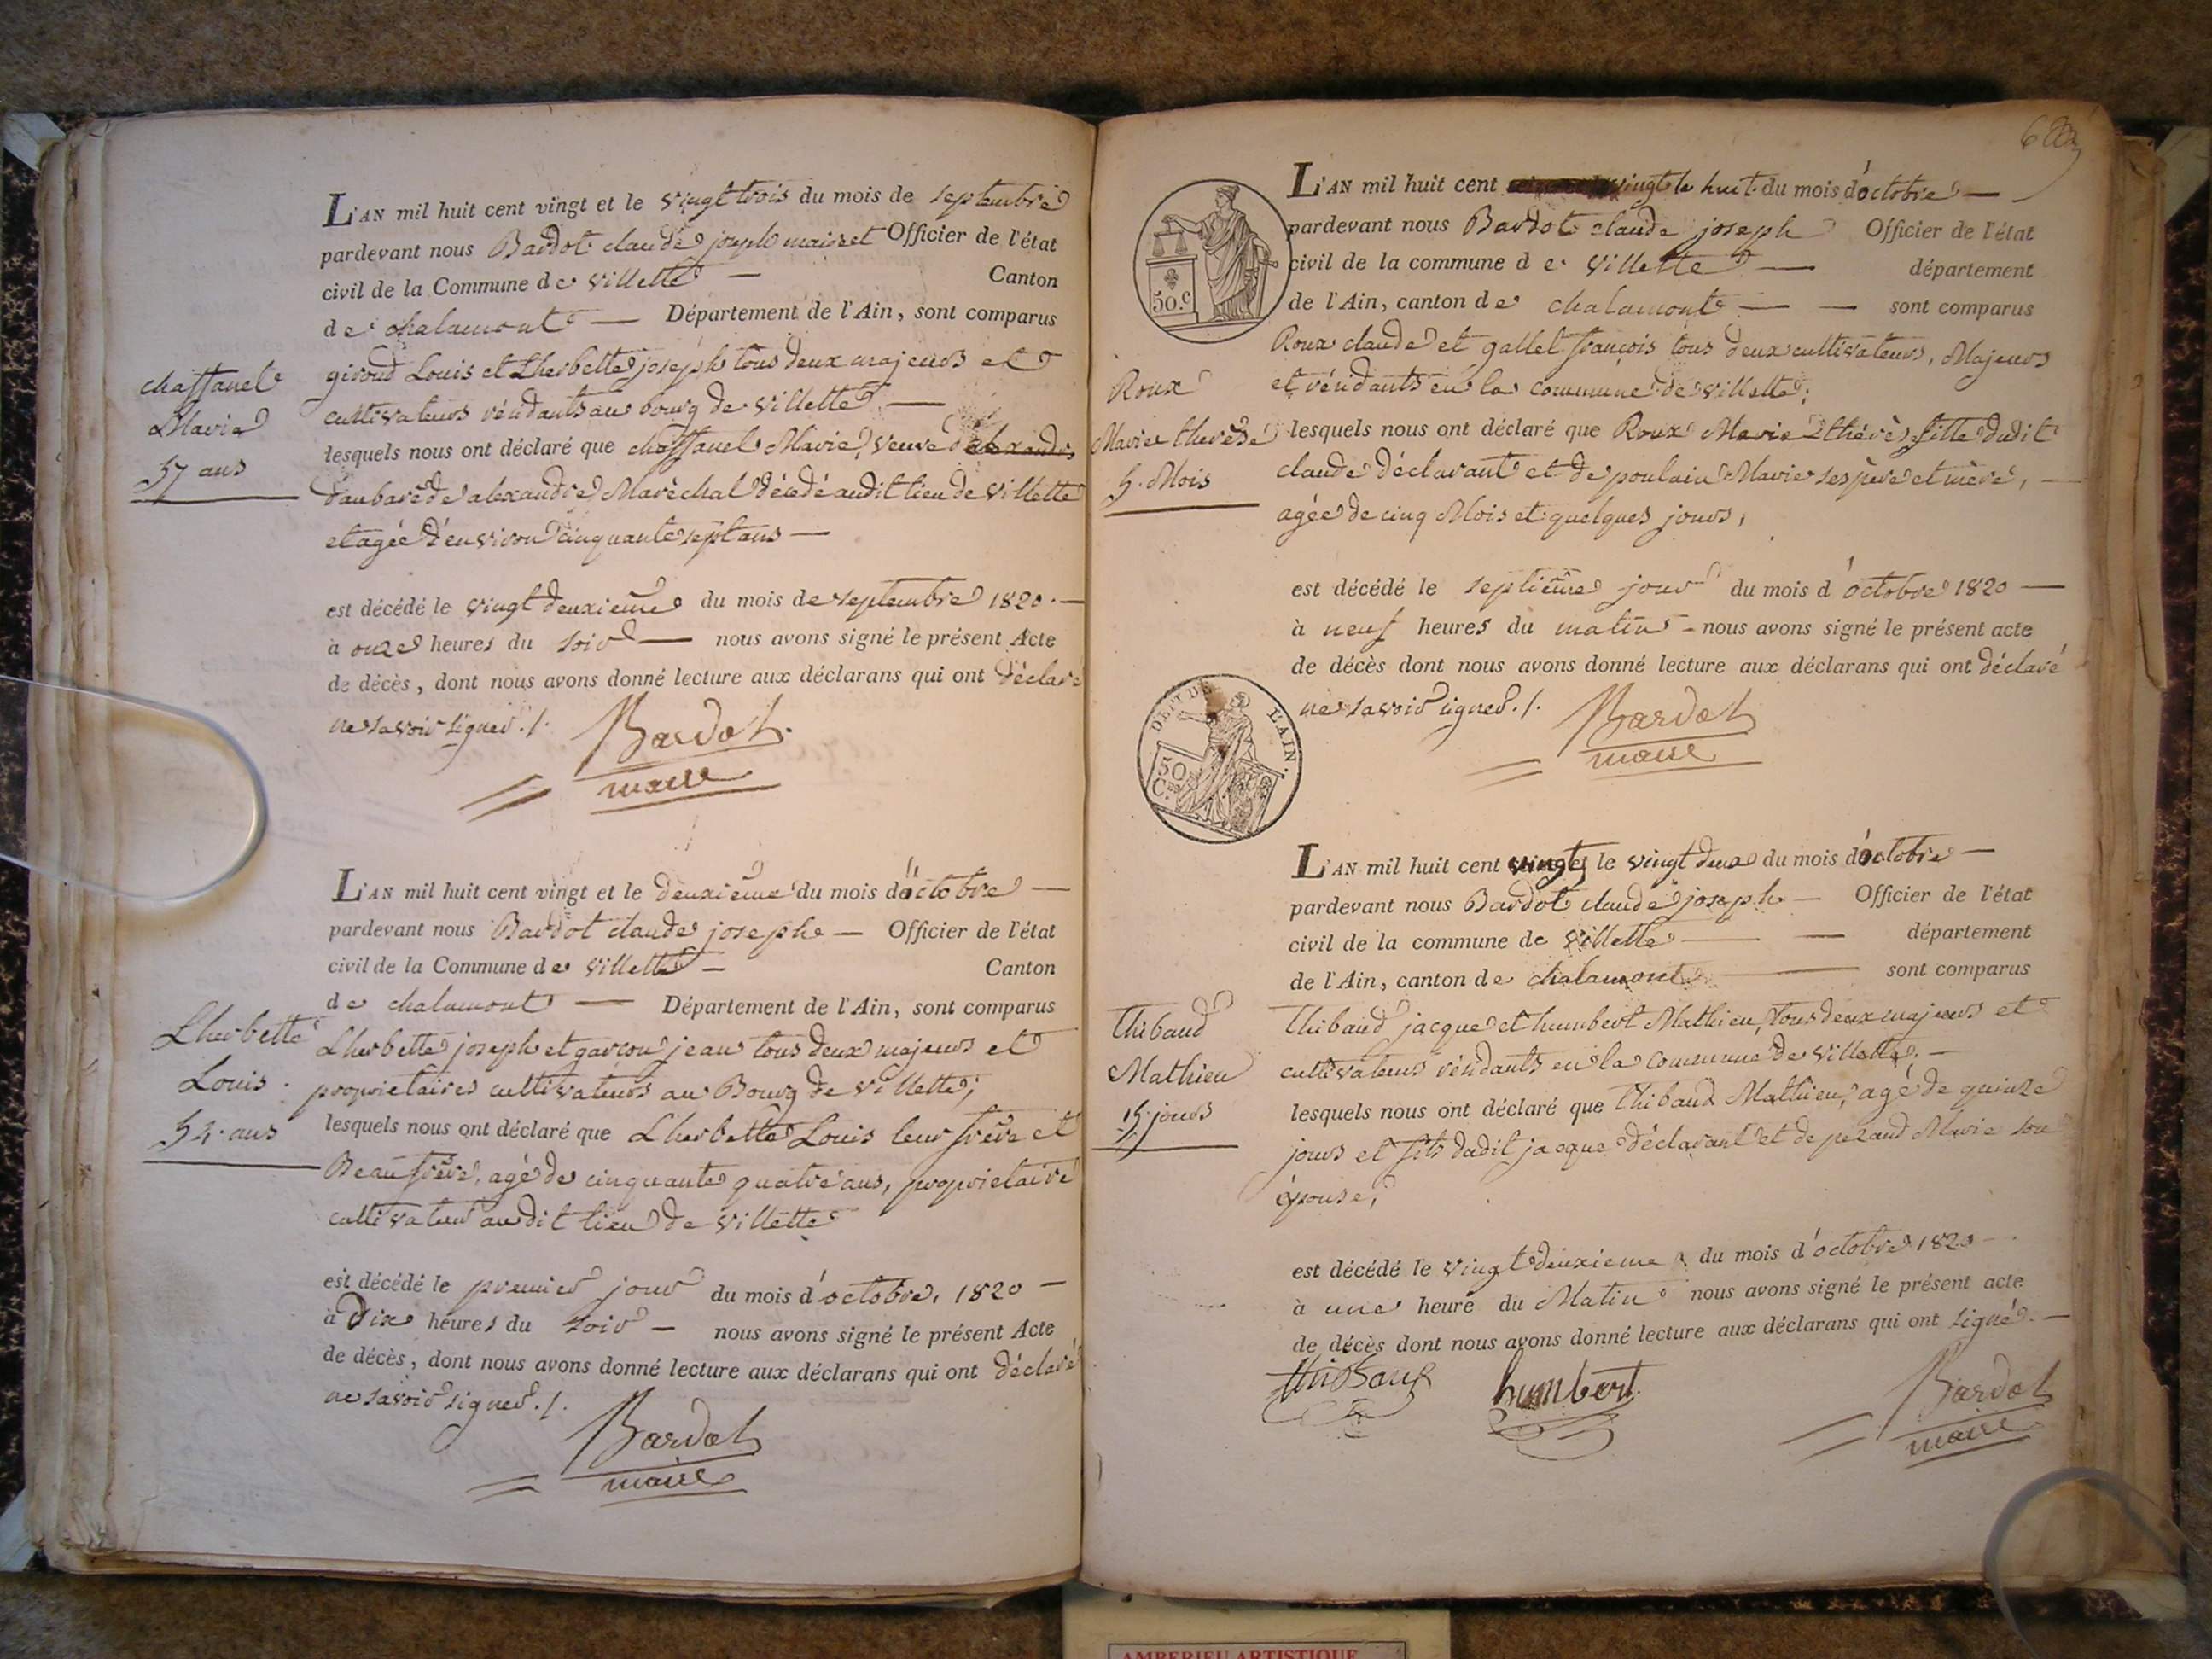 L'AN mil huit cent vingt et le vingt trois du mois de septembre
pardevant nous Bardot claude joseph maire et Officier de l'état
civil de la Commune de villette — Canton
de chalamont — Département de l'Ain, sont comparus
giroud Louis et Lherbette joseph tous deux majeurs et
cultivateurs résidants au bourg de villette —
lesquels nous ont déclaré que chassanel Marie, veuve
alexandre Maréchal décédé audit lieu de villette
et agée d'environ cinquante sept ans —
chassanel
Marie
57 ans
est décédé le vingt deuxieme du mois de septembre 1820. —
à onze heures du soir — nous avons signé le présent Acte
de décès, dont nous avons donné lecture aux déclarans qui ont déclaré
ne savoir signer ./.
Bardot.
maire
L'AN mil huit cent vingt et le deuxième du mois d'octobre —
pardevant nous Bardot claude joseph — Officier de l'état
civil de la Commune de villette — Canton
de chalamont — Département de l'Ain, sont comparus
Lherbette joseph et garçon jean tous deux majeurs et
proprietaires cultivateurs au Bourg de villette;
lesquels nous ont déclaré que Lherbette Louis leur frère et
Beaufrère, agé de cinquante quatre ans, proprietaire
cultivateur audit lieu de villette
Lherbette
Louis.
54. ans
est décédé le premier jour du mois d'octobre, 1820 —
à Dix heures du soir — nous avons signé le présent Acte
de décès, dont nous avons donné lecture aux déclarans qui ont déclaré
ne savoir signer ./.
Bardot
maire
L'AN mil huit cent vingt le huit du mois d'octobre —
pardevant nous Bardot claude joseph Officier de l'état
civil de la commune de villette — département
de l'Ain, canton de chalamont — — sont comparus
Roux claude et gallet françois tous deux cultivateurs, Majeurs
et résidants en la commune de villette;
lesquels nous ont déclaré que Roux Marie thérèse fille dudit
claude déclarant et de poulain Marie ses père et mère, —
agée de cinq Mois et quelques jours,
50.c
Roux
Marie thérèse
5. Mois
est décédé le septième jour du mois d'octobre 1820 —
à neuf heures du matin — nous avons signé le présent acte
de décès dont nous avons donné lecture aux déclarans qui ont déclaré
ne savoir signer ./.
Bardot
maire
L'AIN.
50
C.
L'AN mil huit cent vingt le vingt deux du mois d'octobre —
pardevant nous Bardot claude joseph — Officier de l'état
civil de la commune de villette — — département
de l'Ain, canton de chalamont — sont comparus
Thibaud jacque et humbert Mathieu, tous deux majeurs et
cultivateurs résidants en la commune de villette. —
lesquels nous ont déclaré que Thibaud Mathieu, agé de quinze
jours et fils dudit jacque déclarant et de Marie son
épouse,
Thibaud
Mathieu
15 jours
est décédé le vingt deuxieme du mois d'octobre 1820
à une heure du Matin nous avons signé le présent acte
de décès dont nous avons donné lecture aux déclarans qui ont signé. —
humbert
Bardot
maire
AMBERIEU ARTISTIQUE